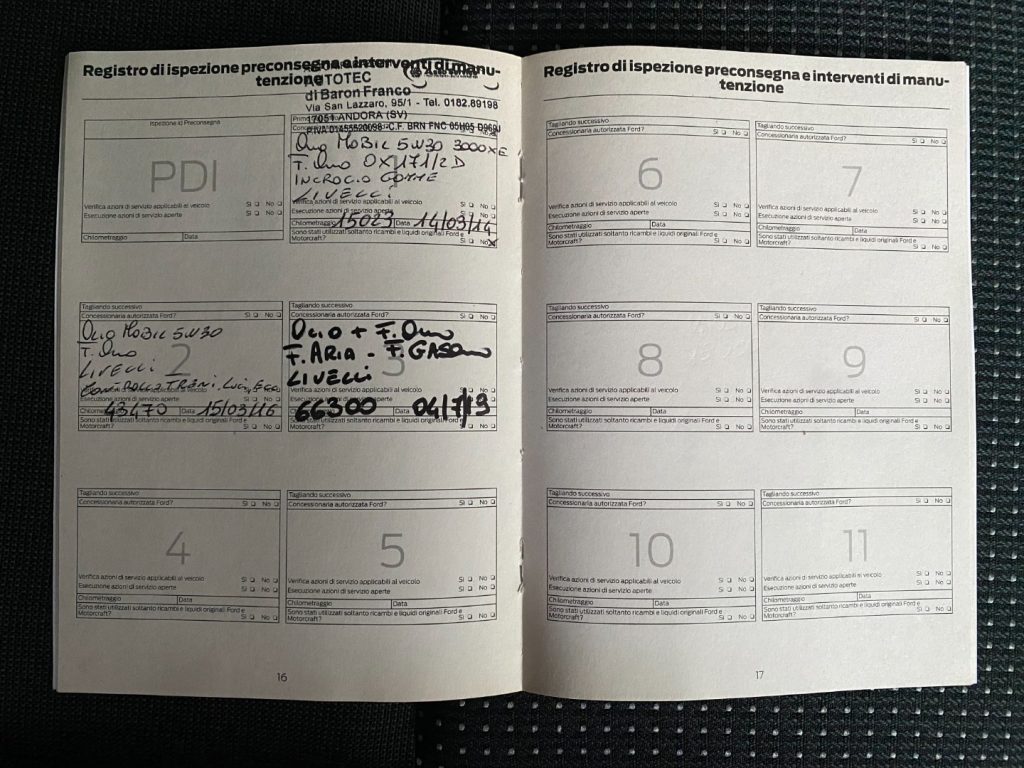 Registro di ispezione preconsegna e interventi di manu-
tenzione
AUTOTEC
di Baron Franco
Via San Lazzaro, 95/1 - Tel. 0182.89198
17051 ANDORA (SV)
Ispezione di Preconsegna
PDI
Verifica azioni di servizio applicabili al veicolo Sì No
Esecuzione azioni di servizio aperte Sì No
Chilometraggio Data
Olio MOBIL 5W30 3000 XE
F. Olio OX171/2D
INCROCIO GOMME
LIVELLI
Verifica azioni di servizio applicabili al veicolo Sì No
Esecuzione azioni di servizio aperte Sì No
Chilometraggio 15023 Data 14/03/14
Sono stati utilizzati soltanto ricambi e liquidi originali Ford e
Motorcraft? Sì No X
Tagliando successivo
Concessionaria autorizzata Ford? Sì No
2
Olio MOBIL 5W30
F. Olio
LIVELLI
CONTROLLO FRENI, LUCI,
Esecuzione azioni di servizio aperte Sì No
43470 Data 15/03/16
Sono stati utilizzati soltanto ricambi e liquidi originali Ford e
Motorcraft? Sì No
Tagliando successivo
Concessionaria autorizzata Ford? Sì No
3
OLIO + F. Olio
F. ARIA - F. GASOLIO
LIVELLI
Esecuzione azioni di servizio aperte Sì No
66300 Data 04/7/19
Sono stati utilizzati soltanto ricambi e liquidi originali Ford e
Motorcraft? Sì No
Tagliando successivo
Concessionaria autorizzata Ford? Sì No
4
Verifica azioni di servizio applicabili al veicolo Sì No
Esecuzione azioni di servizio aperte Sì No
Chilometraggio Data
Sono stati utilizzati soltanto ricambi e liquidi originali Ford e
Motorcraft? Sì No
Tagliando successivo
Concessionaria autorizzata Ford? Sì No
5
Verifica azioni di servizio applicabili al veicolo Sì No
Esecuzione azioni di servizio aperte Sì No
Chilometraggio Data
Sono stati utilizzati soltanto ricambi e liquidi originali Ford e
Motorcraft? Sì No
16
Registro di ispezione preconsegna e interventi di manu-
tenzione
Tagliando successivo
Concessionaria autorizzata Ford? Sì No
6
Verifica azioni di servizio applicabili al veicolo Sì No
Esecuzione azioni di servizio aperte Sì No
Chilometraggio Data
Sono stati utilizzati soltanto ricambi e liquidi originali Ford e
Motorcraft? Sì No
Tagliando successivo
Concessionaria autorizzata Ford? Sì No
7
Verifica azioni di servizio applicabili al veicolo Sì No
Esecuzione azioni di servizio aperte Sì No
Chilometraggio Data
Sono stati utilizzati soltanto ricambi e liquidi originali Ford e
Motorcraft? Sì No
Tagliando successivo
Concessionaria autorizzata Ford? Sì No
8
Verifica azioni di servizio applicabili al veicolo Sì No
Esecuzione azioni di servizio aperte Sì No
Chilometraggio Data
Sono stati utilizzati soltanto ricambi e liquidi originali Ford e
Motorcraft? Sì No
Tagliando successivo
Concessionaria autorizzata Ford? Sì No
9
Verifica azioni di servizio applicabili al veicolo Sì No
Esecuzione azioni di servizio aperte Sì No
Chilometraggio Data
Sono stati utilizzati soltanto ricambi e liquidi originali Ford e
Motorcraft? Sì No
Tagliando successivo
Concessionaria autorizzata Ford? Sì No
10
Verifica azioni di servizio applicabili al veicolo Sì No
Esecuzione azioni di servizio aperte Sì No
Chilometraggio Data
Sono stati utilizzati soltanto ricambi e liquidi originali Ford e
Motorcraft? Sì No
Tagliando successivo
Concessionaria autorizzata Ford? Sì No
11
Verifica azioni di servizio applicabili al veicolo Sì No
Esecuzione azioni di servizio aperte Sì No
Chilometraggio Data
Sono stati utilizzati soltanto ricambi e liquidi originali Ford e
Motorcraft? Sì No
17